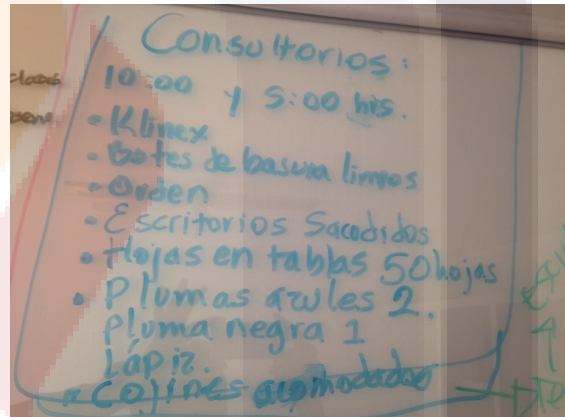 Consultorios:
10:00 y 5:00 hrs.
• Klinex
• Botes de basura limpios
• Orden
• Escritorios Sacudidos
• Hojas en tablas 50 hojas
• Plumas azules 2.
Pluma negra 1
Lápiz.
• Cojines acomodados